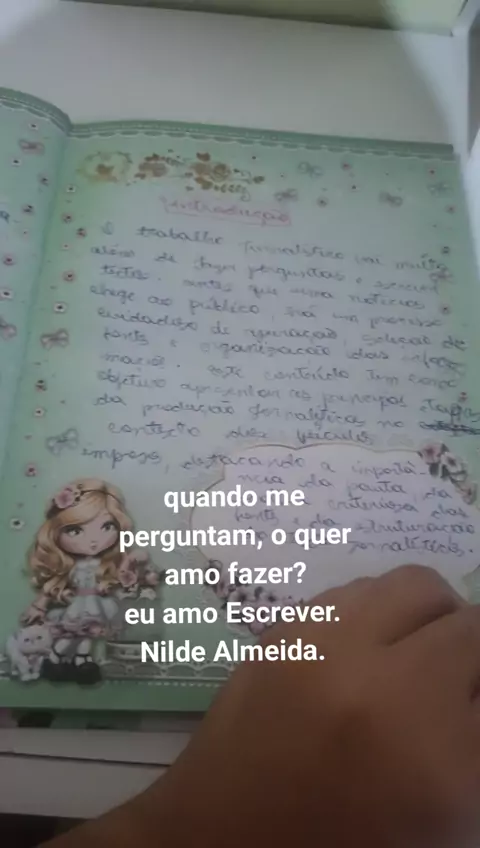 Introdução
O trabalho jornalístico vai muito
além de fazer perguntas e escrever
textos. Antes que uma notícias
chege ao público, há um processo
cuidadoso de apuração, seleção de
fonts e organização das infor
mações. Este conteúdo tem como
objetivo apresentar os principais etapas
da produção jornalísticas no
contexto dos veículos
impress, destacando a importâ
ncia da pauta, da
criteriosa das
fonts e da estruturação
jornalísticas.
quando me
perguntam, o quer
amo fazer?
eu amo Escrever.
Nilde Almeida.